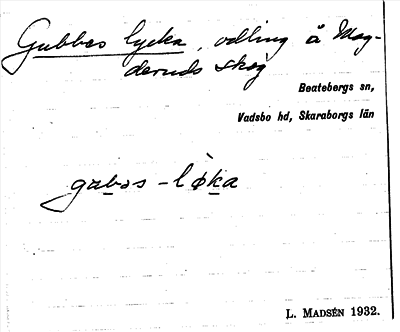 Gubbes lycka, odling å Mag-
deruds skog
Beatebergs sn,
Vadsbo hd, Skaraborgs län
gɯbəs - lø̀ka
L. MADSÉN 1932.